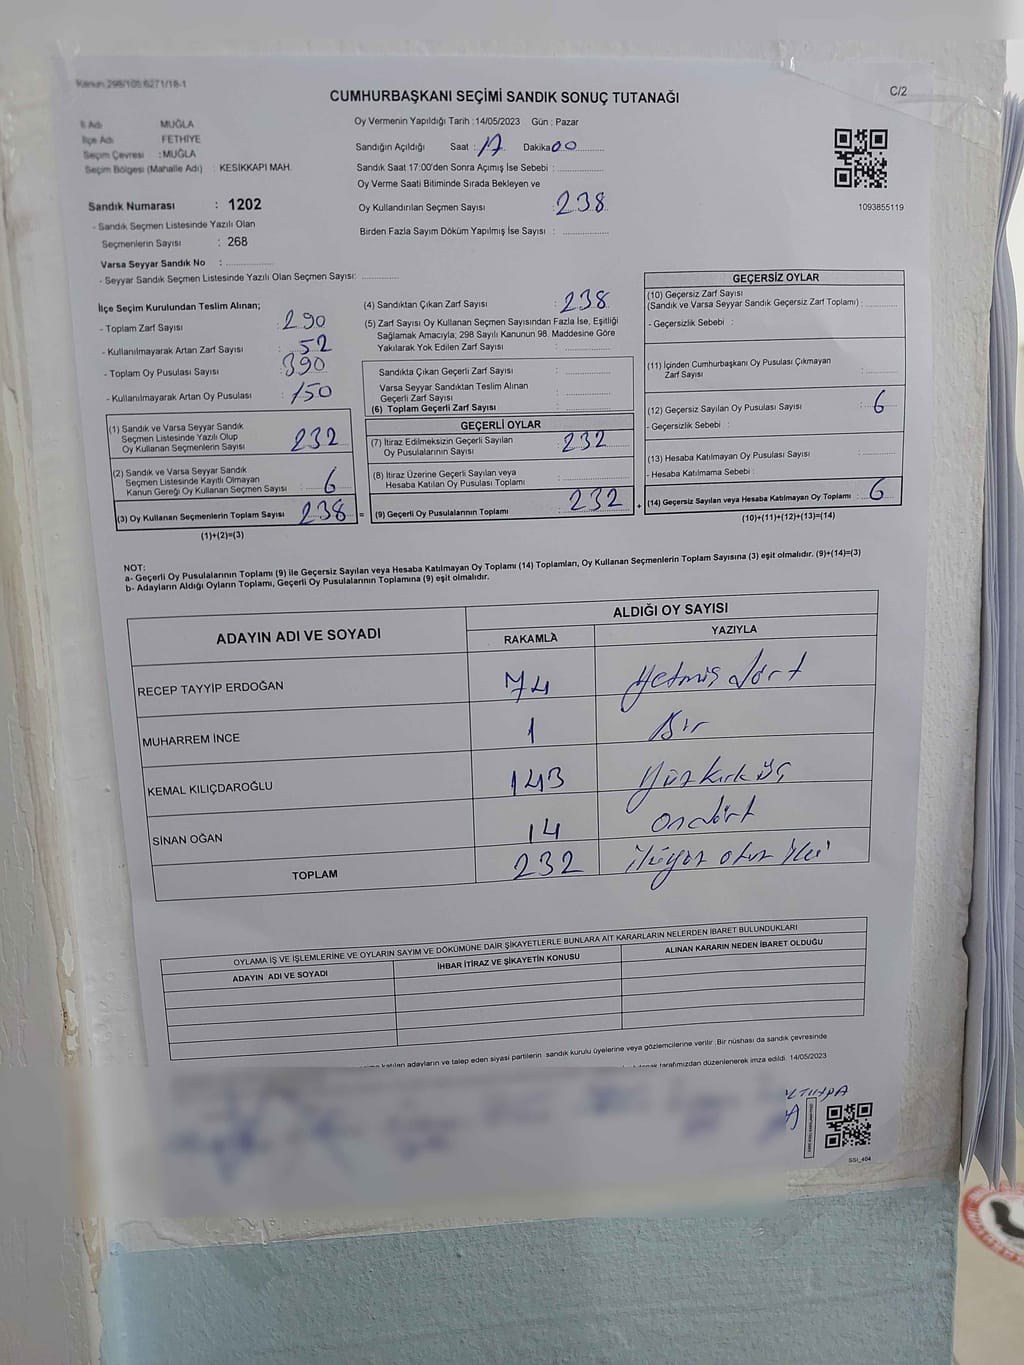 Kanun:298/105;6271/16-1
C/2
CUMHURBAŞKANI SEÇİMİ SANDIK SONUÇ TUTANAĞI
İl Adı MUĞLA
İlçe Adı FETHİYE
Seçim Çevresi : MUĞLA
Seçim Bölgesi (Mahalle Adı) : KESİKKAPI MAH.
Sandık Numarası : 1202
- Sandık Seçmen Listesinde Yazılı Olan
Seçmenlerin Sayısı : 268
Varsa Seyyar Sandık No :
- Seyyar Sandık Seçmen Listesinde Yazılı Olan Seçmen Sayısı:
Oy Vermenin Yapıldığı Tarih :14/05/2023 Gün : Pazar
Sandığın Açıldığı Saat : 17 Dakika 00
Sandık Saat 17:00'den Sonra Açımış İse Sebebi :
Oy Verme Saati Bitiminde Sırada Bekleyen ve
Oy Kullandırılan Seçmen Sayısı : 238
Birden Fazla Sayım Döküm Yapılmış İse Sayısı :
1093855119
İlçe Seçim Kurulundan Teslim Alınan;
- Toplam Zarf Sayısı : 290
- Kullanılmayarak Artan Zarf Sayısı : 52
- Toplam Oy Pusulası Sayısı : 390
- Kullanılmayarak Artan Oy Pusulası : 150
(1) Sandık ve Varsa Seyyar Sandık
Seçmen Listesinde Yazılı Olup
Oy Kullanan Seçmenlerin Sayısı : 232
(2) Sandık ve Varsa Seyyar Sandık
Seçmen Listesinde Kayıtlı Olmayan
Kanun Gereği Oy Kullanan Seçmen Sayısı : 6
(3) Oy Kullanan Seçmenlerin Toplam Sayısı : 238 =
(1)+(2)=(3)
(4) Sandıktan Çıkan Zarf Sayısı : 238
(5) Zarf Sayısı Oy Kullanan Seçmen Sayısından Fazla İse, Eşitliği
Sağlamak Amacıyla; 298 Sayılı Kanunun 98. Maddesine Göre
Yakılarak Yok Edilen Zarf Sayısı :
Sandıkta Çıkan Geçerli Zarf Sayısı :
Varsa Seyyar Sandıktan Teslim Alınan
Geçerli Zarf Sayısı :
(6) Toplam Geçerli Zarf Sayısı :
GEÇERLİ OYLAR
(7) İtiraz Edilmeksizin Geçerli Sayılan
Oy Pusulalarının Sayısı : 232
(8) İtiraz Üzerine Geçerli Sayılan veya
Hesaba Katılan Oy Pusulası Toplamı :
(9) Geçerli Oy Pusulalarının Toplamı : 232 +
GEÇERSİZ OYLAR
(10) Geçersiz Zarf Sayısı
(Sandık ve Varsa Seyyar Sandık Geçersiz Zarf Toplamı) :
- Geçersizlik Sebebi :
(11) İçinden Cumhurbaşkanı Oy Pusulası Çıkmayan
Zarf Sayısı :
(12) Geçersiz Sayılan Oy Pusulası Sayısı : 6
- Geçersizlik Sebebi :
(13) Hesaba Katılmayan Oy Pusulası Sayısı :
- Hesaba Katılmama Sebebi :
(14) Geçersiz Sayılan veya Hesaba Katılmayan Oy Toplamı : 6
(10)+(11)+(12)+(13)=(14)
NOT:
a- Geçerli Oy Pusulalarının Toplamı (9) ile Geçersiz Sayılan veya Hesaba Katılmayan Oy Toplamı (14) Toplamları, Oy Kullanan Seçmenlerin Toplam Sayısına (3) eşit olmalıdır. (9)+(14)=(3)
b- Adayların Aldığı Oyların Toplamı, Geçerli Oy Pusulalarının Toplamına (9) eşit olmalıdır.
ADAYIN ADI VE SOYADI ALDIĞI OY SAYISI
RAKAMLA YAZIYLA
RECEP TAYYİP ERDOĞAN 74 Yetmiş dört
MUHARREM İNCE 1 Bir
KEMAL KILIÇDAROĞLU 143 Yüzkırküç
SİNAN OĞAN 14 ondört
TOPLAM 232 ikiyüz otuz iki
OYLAMA İŞ VE İŞLEMLERİNE VE OYLARIN SAYIM VE DÖKÜMÜNE DAİR ŞİKAYETLERLE BUNLARA AİT KARARLARIN NELERDEN İBARET BULUNDUKLARI
ADAYIN ADI VE SOYADI İHBAR İTİRAZ VE ŞİKAYETİN KONUSU ALINAN KARARIN NEDEN İBARET OLDUĞU
katılan adayların ve talep eden siyasi partilerin sandık kurulu üyelerine veya gözlemcilerine verilir. Bir nüshası da sandık çevresinde
tarafımızdan düzenlenerek imza edildi. 14/05/2023
SSI_404